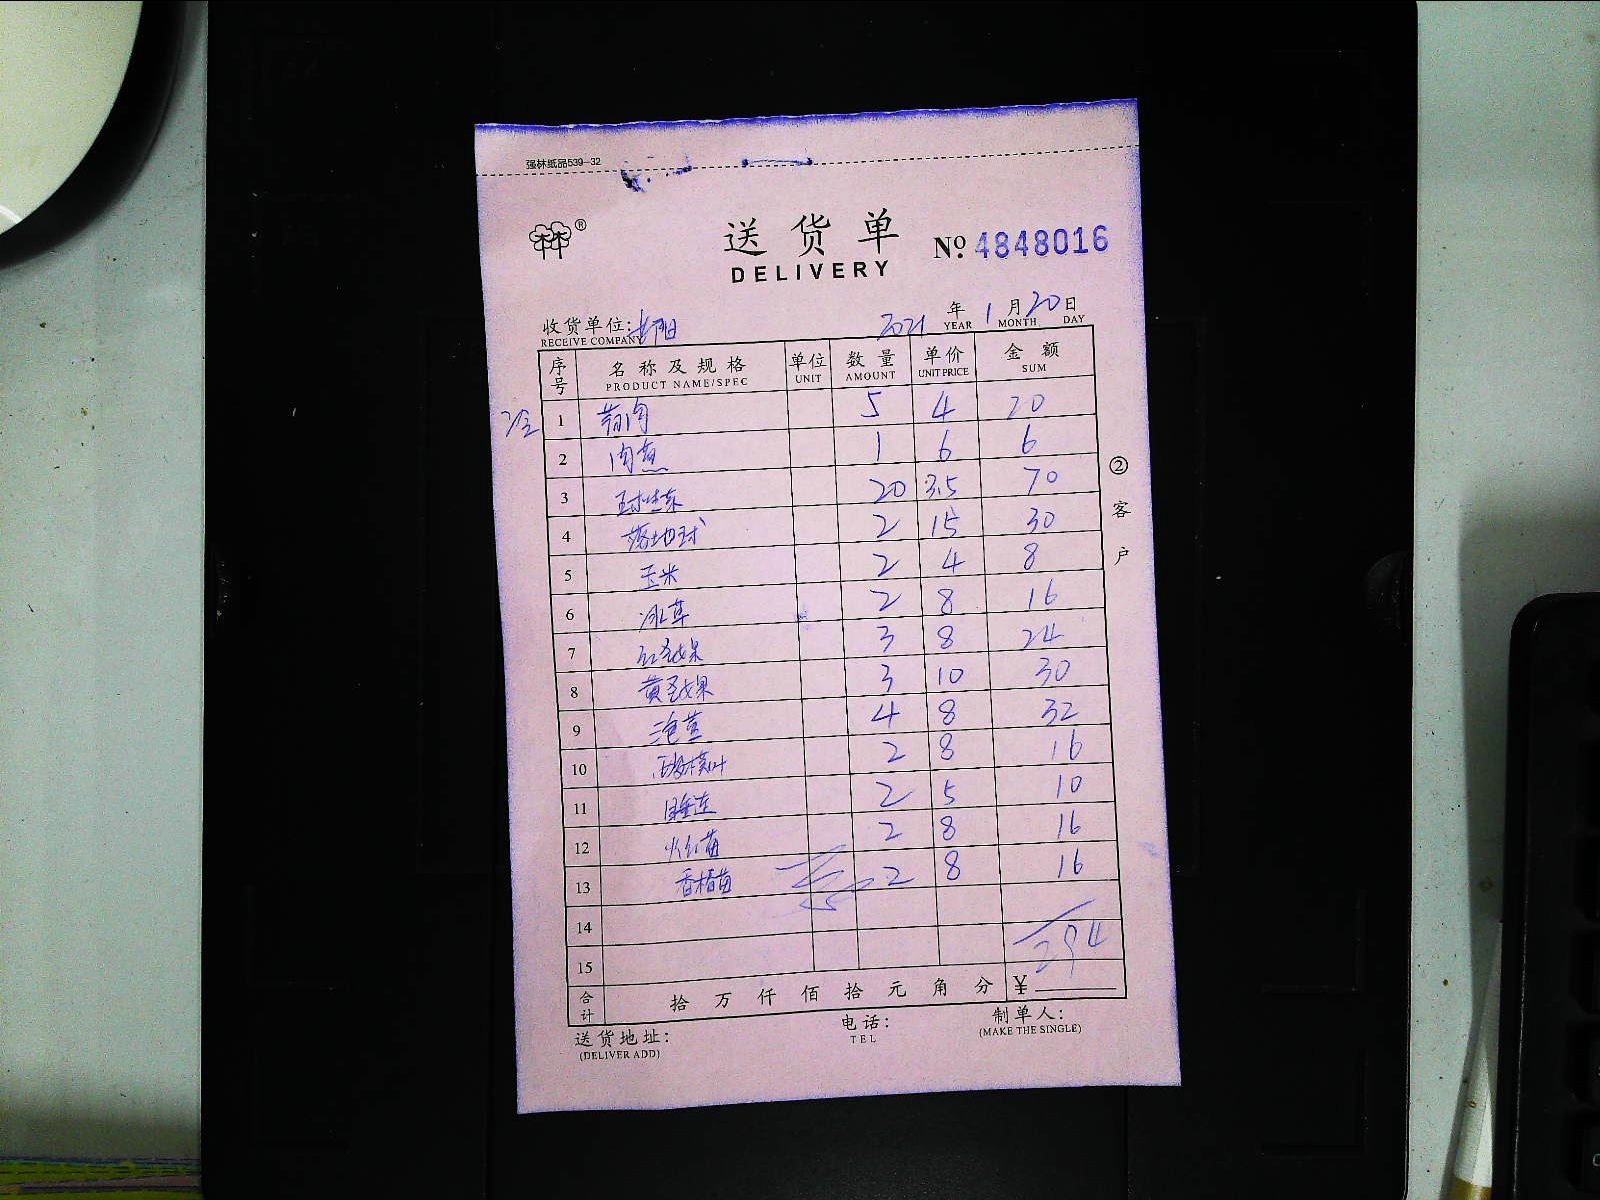 强林纸品539-32
®
送货单
DELIVERY
No. 4848016
收货单位:
RECEIVE COMPANY
2021 年 1 月 20 日
YEAR MONTH DAY
序号 名称及规格 单位 数量 单价 金额
PRODUCT NAME/SPEC UNIT AMOUNT UNIT PRICE SUM
1 5 4 20
2 1 6 6
3 20 3.5 70
4 落地球 2 15 30
5 玉米 2 4 8
6 冰草 2 8 16
7 红圣女果 3 8 24
8 黄圣女果 3 10 30
9 4 8 32
10 2 8 16
11 睡莲 2 5 10
12 火红苗 2 8 16
13 香椿苗 2 8 16
14
15 294
合计 拾 万 仟 佰 拾 元 角 分 ¥
送货地址: 电话: 制单人:
(DELIVER ADD) TEL (MAKE THE SINGLE)
②客户